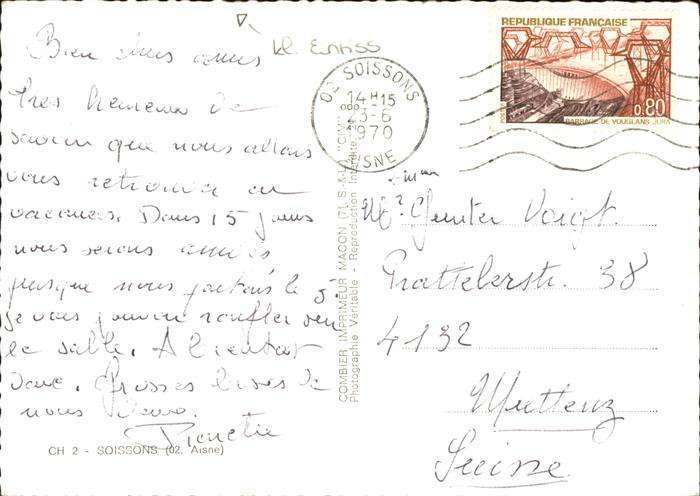 Kl. Ennss
Bien chers amis
très heureux de
savoir que nous allons
vous retrouver en
vacances. Dans 15 jours
nous serons arrivés
puisque nous partons le 5.
je vais pouvoir ronfler sur
le sable. A bientôt
donc. Grosses bises de
nous deux.
CH 2 - SOISSONS (02. Aisne)
COMBIER IMPRIMEUR MACON (71. S.-&-L.) "CIM"
Photographie Véritable - Reproduction Interdite
02 SOISSONS
14 H 15
3-6
1970
AISNE
REPUBLIQUE FRANÇAISE
0,80
BARRAGE DE VOUGLANS JURA
Mr Gunter Voigt.
Prattelerstr. 38
4132
Muttenz
Suisse